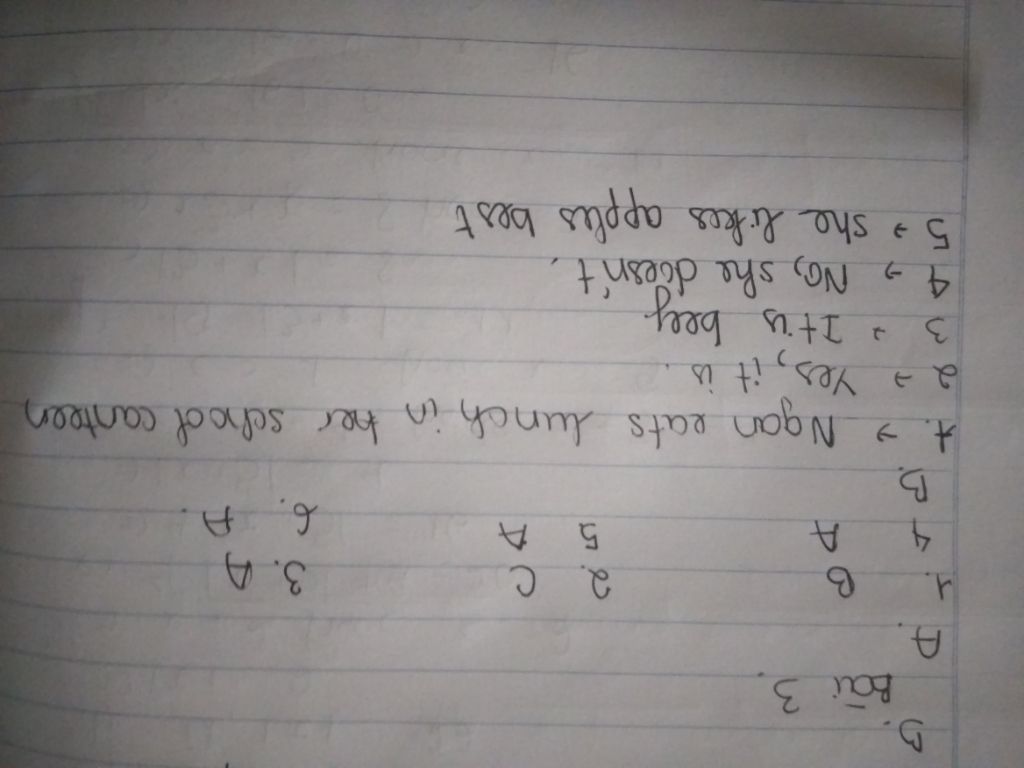 B.
Bài 3.
A.
1. B 2. C 3. A
4 A 5 A 6. A.
B.
1. → Ngan eats lunch in her school canteen
2 → Yes, it is.
3 → It is beef.
4 → No, she doesn't.
5 → she likes apples best